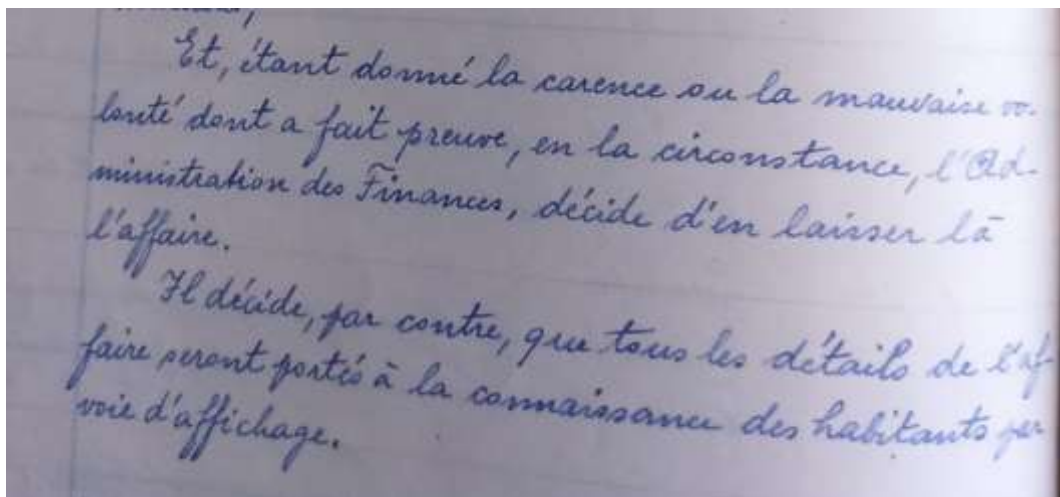 Et, étant donné la carence ou la mauvaise vo-
lonté dont a fait preuve, en la circonstance, l'Ad-
ministration des Finances, décide d'en laisser là
l'affaire.
Il décide, par contre, que tous les détails de l'af
faire seront portés à la connaissance des habitants par
voie d'affichage.